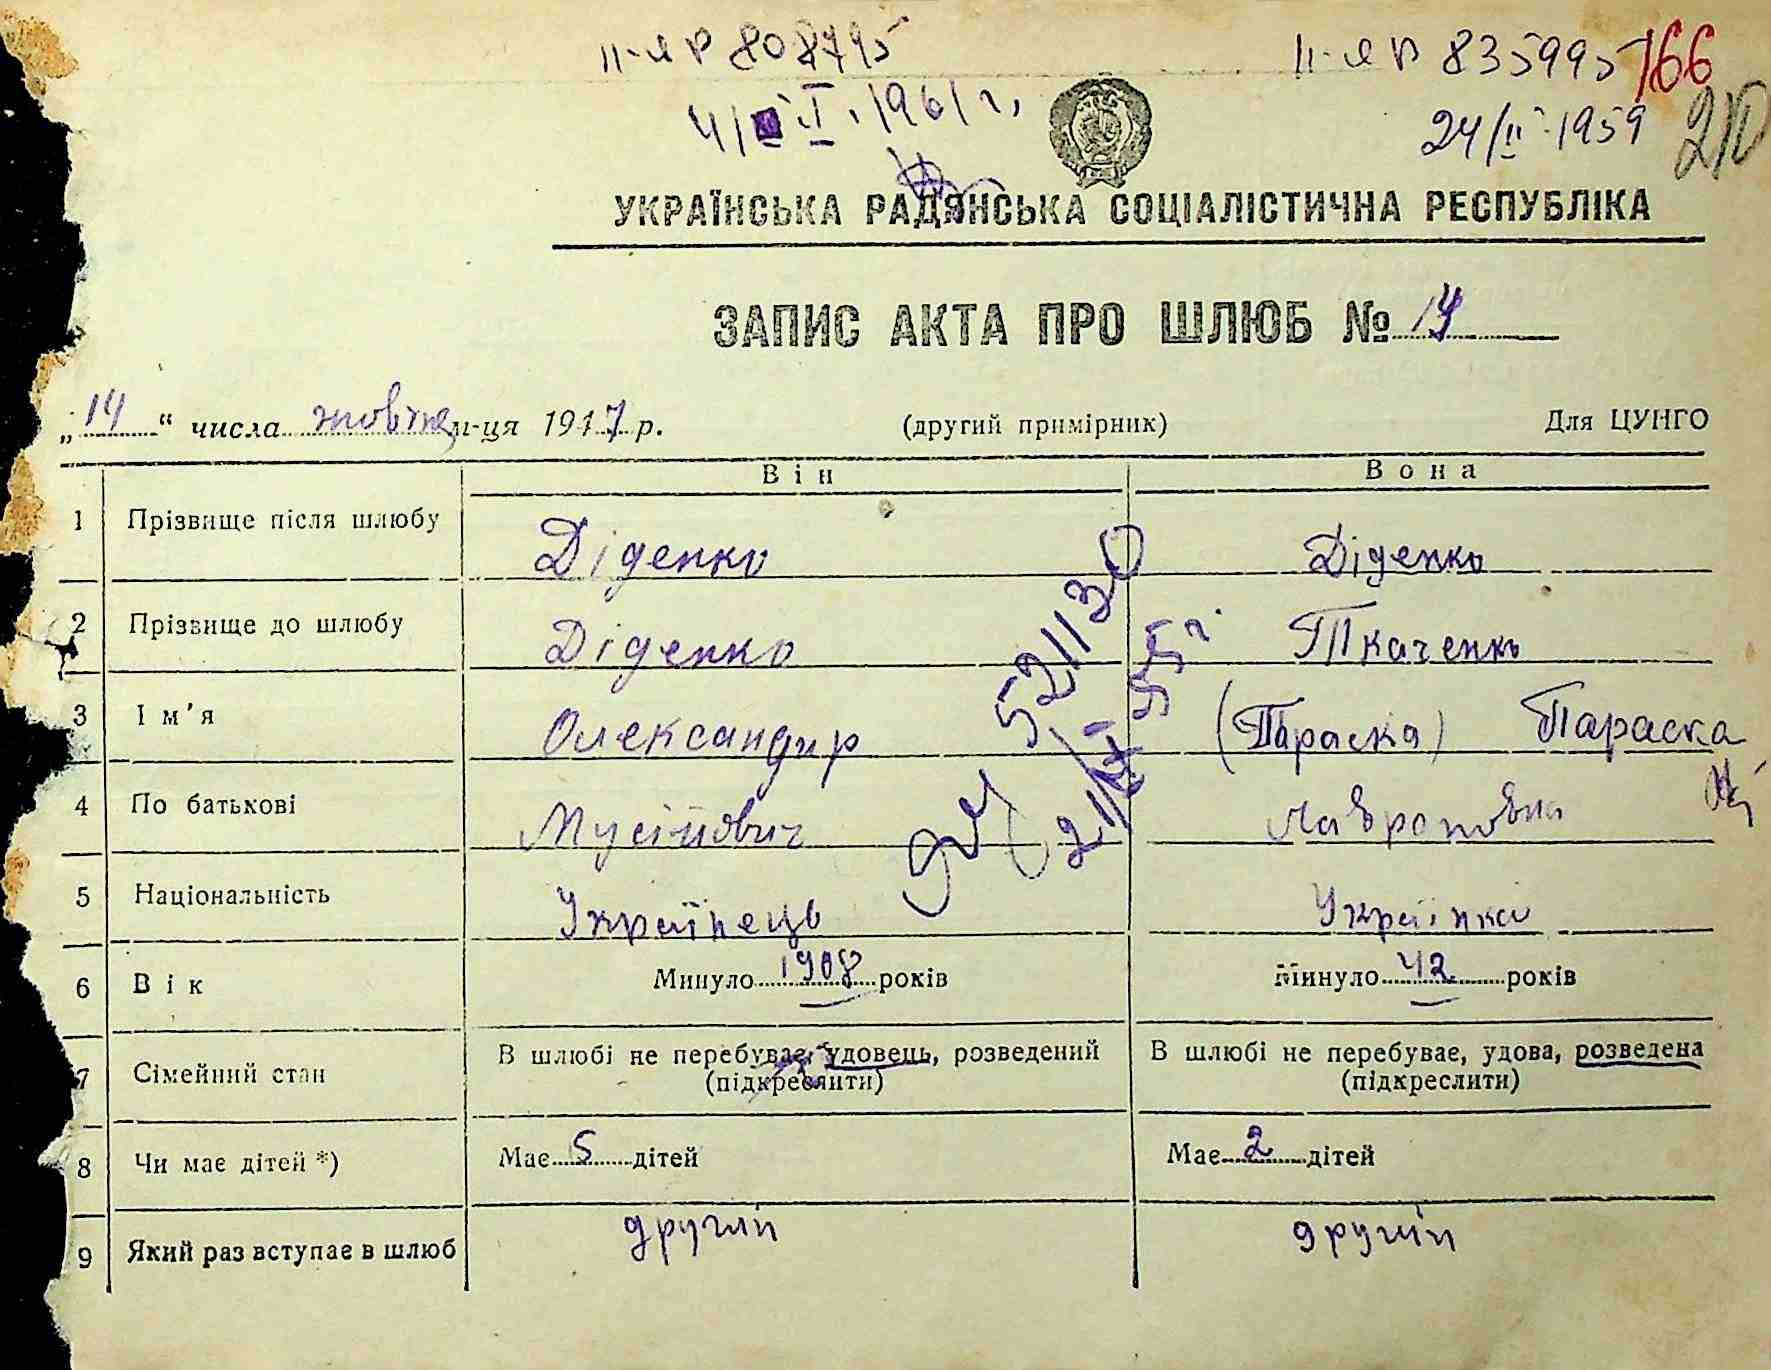 II-ЯР 808795 II-ЯР 835995 166
4/I. 1961 г. 24/II-1959 210
УКРАЇНСЬКА РАДЯНСЬКА СОЦІАЛІСТИЧНА РЕСПУБЛІКА
ЗАПИС АКТА ПРО ШЛЮБ №
„14“ числа жовтня м-ця 1947 р. (другий примірник) Для ЦУНГО
Він Вона
1 Прізвище після шлюбу Діденко Діденко
2 Прізвище до шлюбу Діденко Ткаченко
3 Ім'я Олександир (Параска) Параска
4 По батькові Мусійович
5 Національність Українець Українка
6 Вік Минуло 1908 років Минуло 42 років
7 Сімейний стан В шлюбі не перебуває, удовець, розведений В шлюбі не перебуває, удова, розведена
(підкреслити) (підкреслити)
8 Чи має дітей *) Має 5 дітей Має 2 дітей
9 Який раз вступає в шлюб другий другий
521130
55 г.